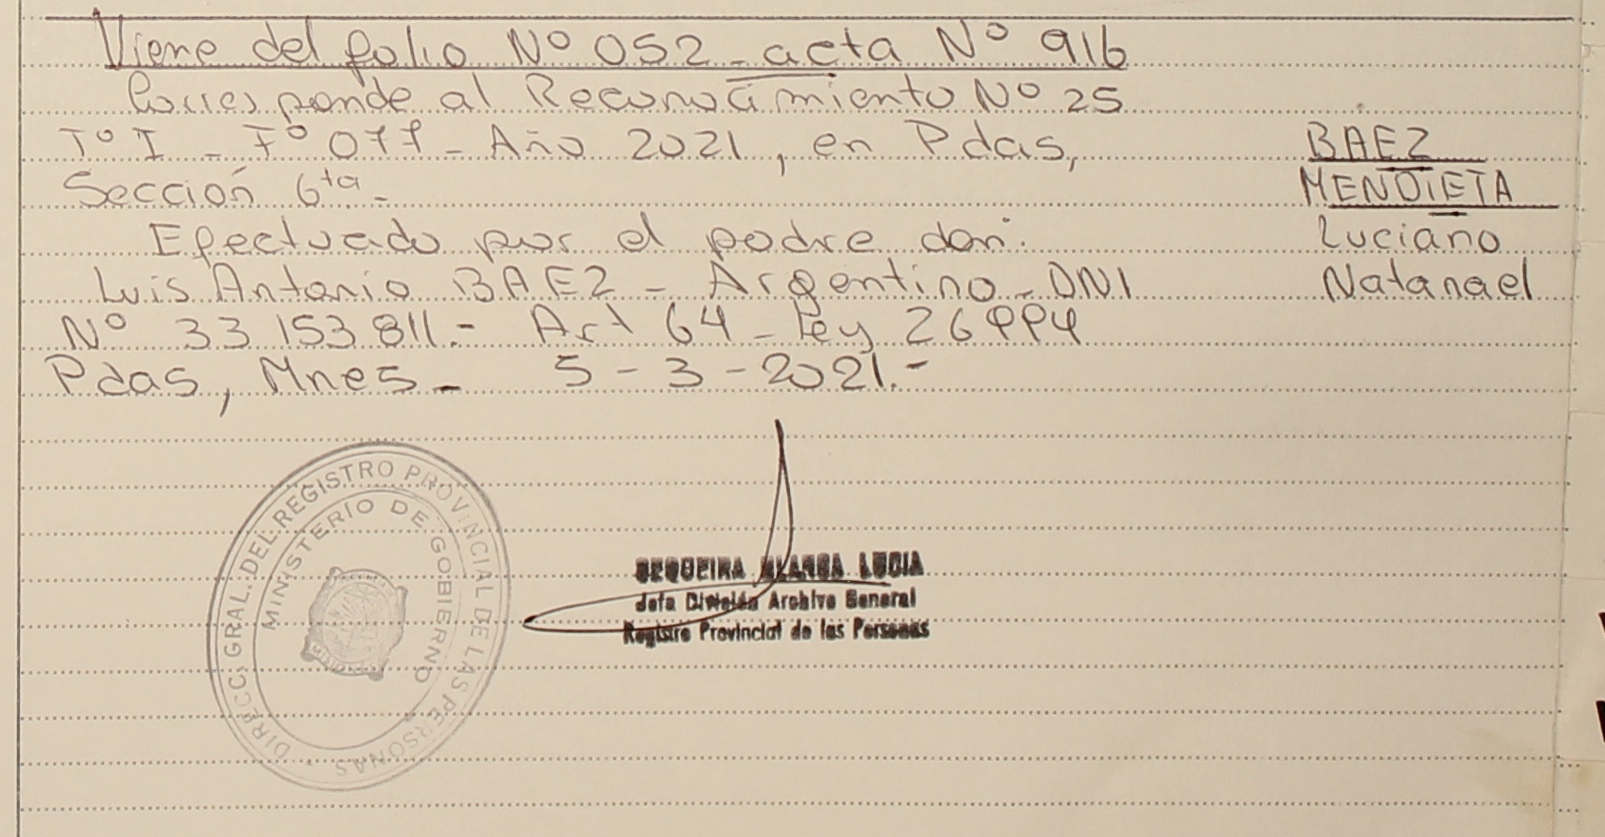 Viene del folio Nº 052 - acta Nº 916
Corresponde al Reconocimiento Nº 25
Tº I - Fº 077 - Año 2021, en Pdas,
Sección 6ta -
Efectuado por el padre don:
Luis Antonio BAEZ - Argentino - DNI
Nº 33 153 811.- Art 64 - Ley 26994
Pdas, Mnes - 5 - 3 - 2021.-
BAEZ
MENDIETA
Luciano
Natanael
DIRECC. GRAL. DEL REGISTRO PROVINCIAL DE LAS PERSONAS
MINISTERIO DE GOBIERNO
SEQUEIRA BLANCA LUCIA
Jefa División Archivo General
Registro Provincial de las Personas